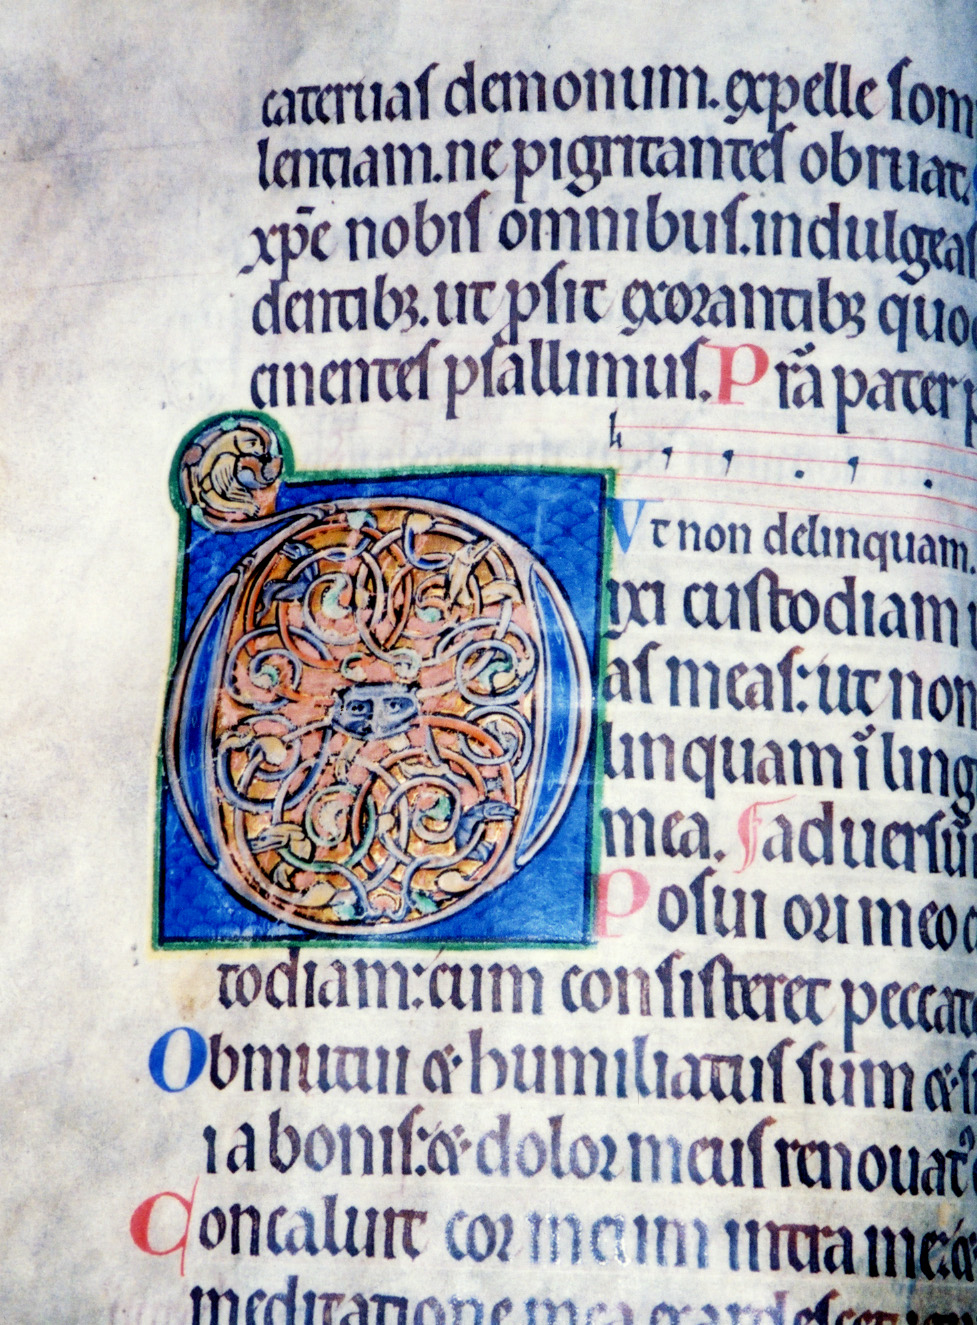 cateruas demonum. expelle som
lentiam. ne pigritantes obruat.
xp̄e nobis omnibus. indulgeas
dentibꝫ. ut ꝓsit exorantibꝫ quo
cinentes psallimus. Pr̄a pater
Vt non delinquam.
ixi custodiam
as meas: ut non
linquam ī ling
mea. aduersū
Posui ori meo c
todiam: cum consisteret peccat
Obmutui & humiliatus sum & s
i a bonis: & dolor meus renouat
Concaluit cor meum intra me: &
meditatione mea exardescet ign